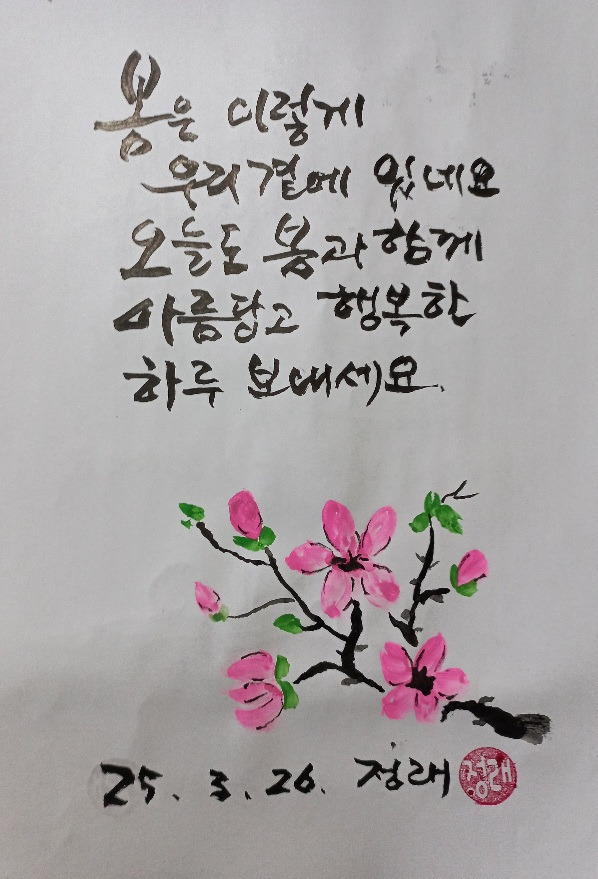 봄은 이렇게
우리곁에 있네요
오늘도 봄과 함께
아름답고 행복한
하루 보내세요.
25. 3. 26. 정래
정래